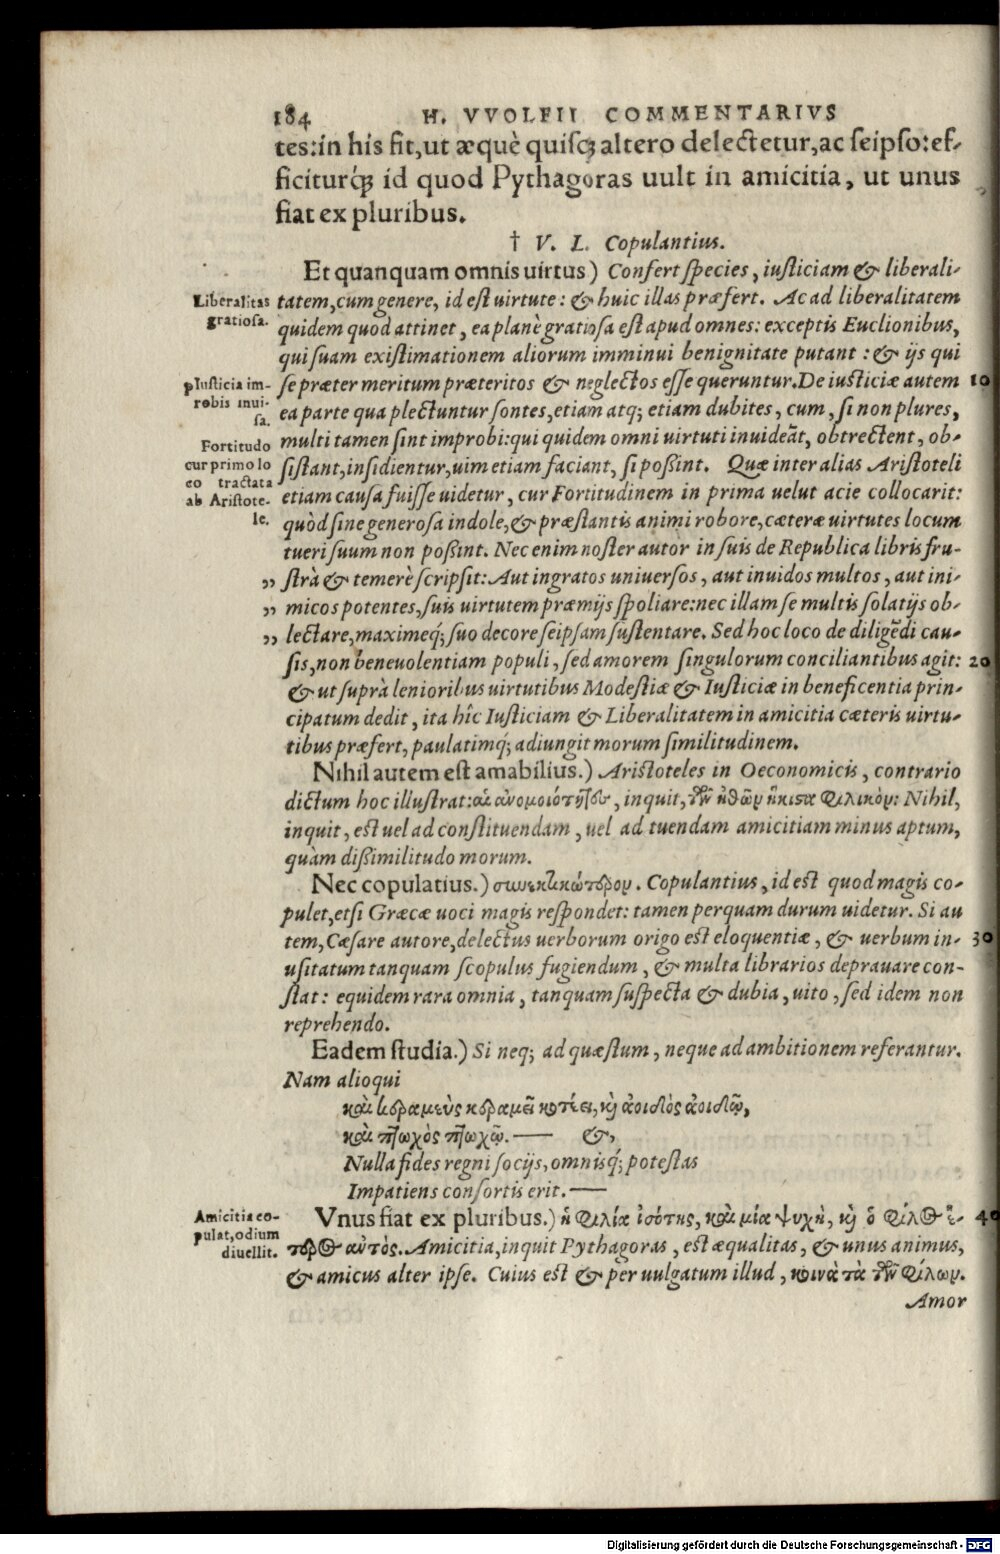 184 H. VVOLFII COMMENTARIVS
tes: in his fit, ut æquè quisq; altero delectetur, ac seipso: ef-
ficiturq́; id quod Pythagoras uult in amicitia, ut unus
fiat ex pluribus.
† V. L. Copulantius.
Et quanquam omnis uirtus) Confert species, iusticiam & liberali-
Liberalitas tatem, cum genere, id est uirtute: & huic illas præfert. Ac ad liberalitatem
gratiosa. quidem quod attinet, ea planè gratiosa est apud omnes: exceptis Euclionibus,
qui suam existimationem aliorum imminui benignitate putant: & ijs qui
Iusticia im- se præter meritum præteritos & neglectos esse queruntur. De iusticiæ autem 10
probis inui- ea parte qua plectuntur sontes, etiam atq; etiam dubites, cum, si non plures,
sa.
Fortitudo multi tamen sint improbi: qui quidem omni uirtuti inuideāt, obtrectent, ob-
cur primo lo sistant, insidientur, uim etiam faciant, si poßint. Quæ inter alias Aristoteli
co tractata
ab Aristote- etiam causa fuisse uidetur, cur Fortitudinem in prima uelut acie collocarit:
le. quòd sine generosa indole, & præstantis animi robore, cæteræ uirtutes locum
tueri suum non poßint. Nec enim noster autor in suis de Republica libris fru-
„ strà & temerè scripsit: Aut ingratos uniuersos, aut inuidos multos, aut ini-
„ micos potentes, suis uirtutem præmijs spoliare: nec illam se multis solatijs ob-
„ lectare, maximeq́; suo decore seipsam sustentare. Sed hoc loco de diligēdi cau-
sis, non beneuolentiam populi, sed amorem singulorum conciliantibus agit: 20
& ut suprà lenioribus uirtutibus Modestiæ & Iusticiæ in beneficentia prin-
cipatum dedit, ita hîc Iusticiam & Liberalitatem in amicitia cæteris uirtu-
tibus præfert, paulatimq́; adiungit morum similitudinem.
Nihil autem est amabilius.) Aristoteles in Oeconomicis, contrario
dictum hoc illustrat: αἱ ἀνομοιότητες, inquit, τῶν ἠθῶν ἥκιστα φιλικόν: Nihil,
inquit, est uel ad constituendam, uel ad tuendam amicitiam minus aptum,
quàm dißimilitudo morum.
Nec copulatius.) συνεκτικώτερον. Copulantius, id est quod magis co-
pulet, etsi Græcæ uoci magis respondet: tamen perquam durum uidetur. Si au
tem, Cæsare autore, delectus uerborum origo est eloquentiæ, & uerbum in- 30
usitatum tanquam scopulus fugiendum, & multa librarios deprauare con-
stat: equidem rara omnia, tanquam suspecta & dubia, uito, sed idem non
reprehendo.
Eadem studia.) Si neq; ad quæstum, neque ad ambitionem referantur.
Nam alioqui
καὶ κεραμεὺς κεραμεῖ κοτέει, κ̀ ἀοιδὸς ἀοιδῷ,
καὶ πτωχὸς πτωχῷ. — &,
Nulla fides regni socijs, omnisq́; potestas
Impatiens consortis erit. —
Amicitia co- Vnus fiat ex pluribus.) ἡ φιλία ἰσότης, καὶ μία ψυχὴ, κ̀ ὁ φίλος ἕ- 40
pulat, odium τερος αὐτὸς. Amicitia, inquit Pythagoras, est æqualitas, & unus animus,
diuellit. & amicus alter ipse. Cuius est & per uulgatum illud, κοινὰ τὰ τῶν φίλων.
Amor
Digitalisierung gefördert durch die Deutsche Forschungsgemeinschaft - DFG